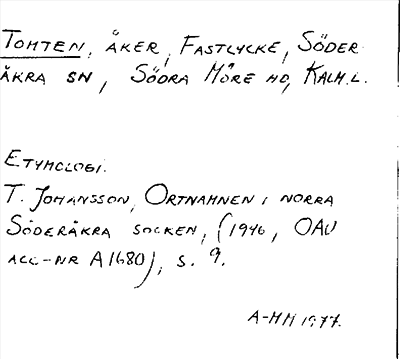 TOMTEN, ÅKER, FASTLYCKE, SÖDER-
ÅKRA SN, SÖDRA MÖRE HD, KALM.L.
ETYMOLOGI.
T. JOHANSSON, ORTNAMNEN I NORRA
SÖDERÅKRA SOCKEN, (1946, OAU
ACC-NR A1680), S. 9.
A-MH 1977.